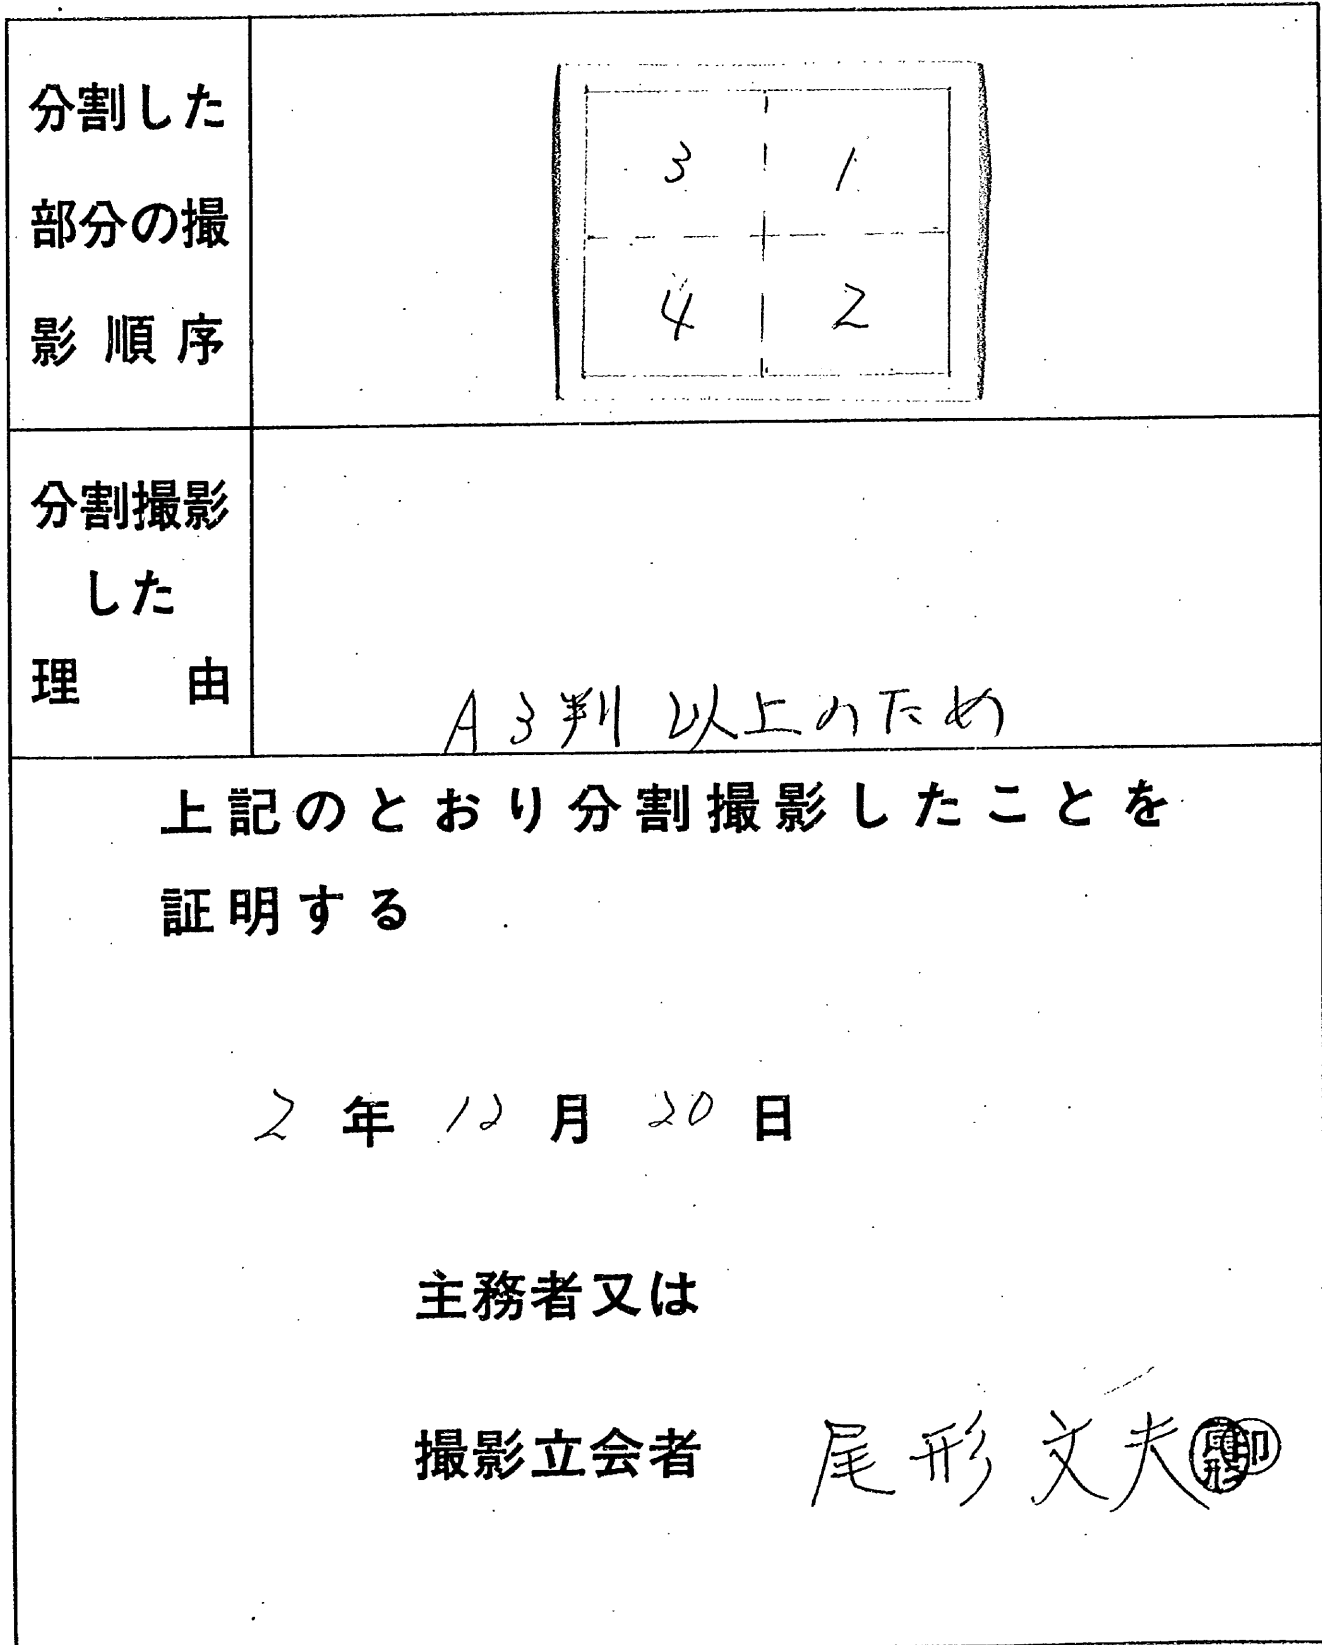 分割した
部分の撮
影順序
3 1
4 2
分割撮影
した
理由
A3判以上のため
上記のとおり分割撮影したことを
証明する
2年12月20日
主務者又は
撮影立会者 尾形文夫 印
尾形